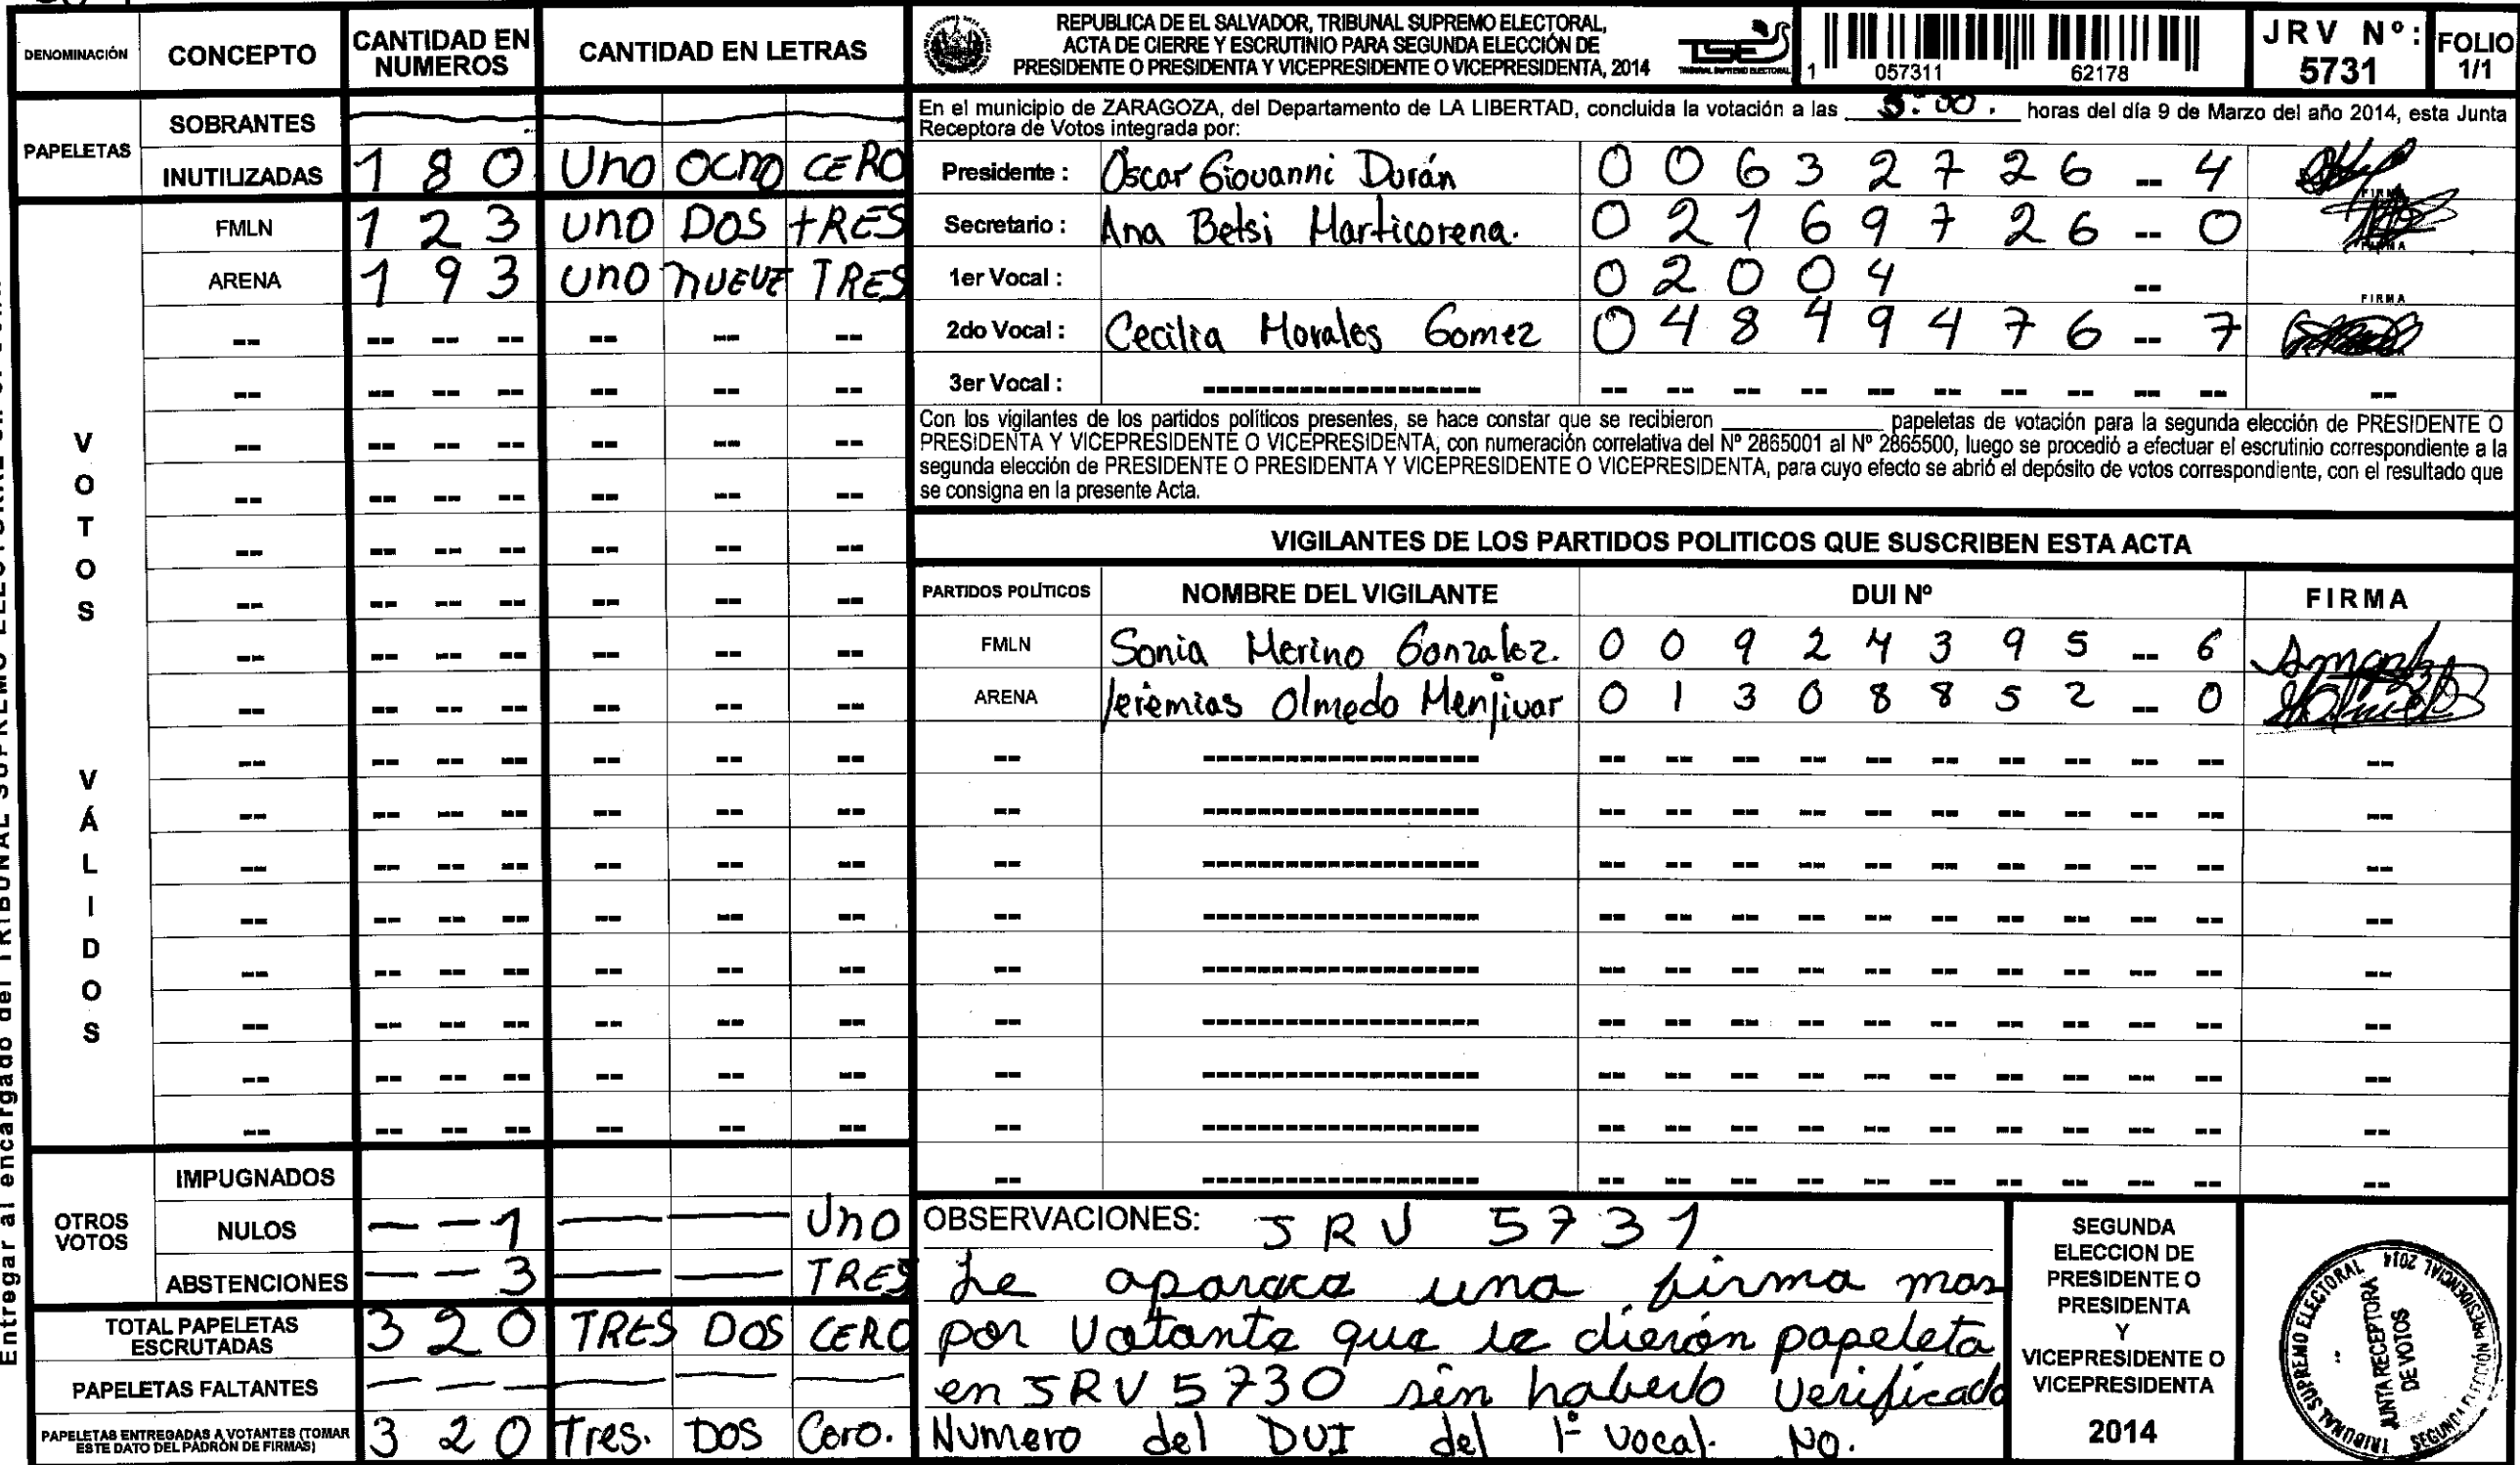 DENOMINACIÓN CONCEPTO CANTIDAD EN NUMEROS CANTIDAD EN LETRAS
PAPELETAS
SOBRANTES
INUTILIZADAS 1 8 0 Uno OCHO CERO
VOTOS VÁLIDOS
FMLN 1 2 3 UNO DOS TRES
ARENA 1 9 3 UNO NUEVE TRES
OTROS VOTOS
IMPUGNADOS
NULOS — — 1 — — Uno
ABSTENCIONES — — 3 — — TRES
TOTAL PAPELETAS ESCRUTADAS 3 2 0 TRES DOS CERO
PAPELETAS FALTANTES — — — — — —
PAPELETAS ENTREGADAS A VOTANTES (TOMAR ESTE DATO DEL PADRÓN DE FIRMAS) 3 2 0 Tres. DOS Cero.
Entregar al encargado del TRIBUNAL SUPREMO
REPUBLICA DE EL SALVADOR, TRIBUNAL SUPREMO ELECTORAL,
ACTA DE CIERRE Y ESCRUTINIO PARA SEGUNDA ELECCIÓN DE
PRESIDENTE O PRESIDENTA Y VICEPRESIDENTE O VICEPRESIDENTA, 2014
TSE
TRIBUNAL SUPREMO ELECTORAL
1 057311 62178
JRV Nº: 5731
FOLIO 1/1
En el municipio de ZARAGOZA, del Departamento de LA LIBERTAD, concluida la votación a las 5:00. horas del día 9 de Marzo del año 2014, esta Junta
Receptora de Votos integrada por:
Presidente : Oscar Giovanni Durán 0 0 6 3 2 7 2 6 -- 4 FIRMA
Secretario : Ana Betsi Marticorena. 0 2 1 6 9 7 2 6 -- 0 FIRMA
1er Vocal : 0 2 0 0 4 -- FIRMA
2do Vocal : Cecilia Morales Gomez 0 4 8 4 9 4 7 6 -- 7
3er Vocal :
Con los vigilantes de los partidos políticos presentes, se hace constar que se recibieron ________ papeletas de votación para la segunda elección de PRESIDENTE O
PRESIDENTA Y VICEPRESIDENTE O VICEPRESIDENTA, con numeración correlativa del Nº 2865001 al Nº 2865500, luego se procedió a efectuar el escrutinio correspondiente a la
segunda elección de PRESIDENTE O PRESIDENTA Y VICEPRESIDENTE O VICEPRESIDENTA, para cuyo efecto se abrió el depósito de votos correspondiente, con el resultado que
se consigna en la presente Acta.
VIGILANTES DE LOS PARTIDOS POLITICOS QUE SUSCRIBEN ESTA ACTA
PARTIDOS POLÍTICOS NOMBRE DEL VIGILANTE DUI Nº FIRMA
FMLN Sonia Merino Gonzalez. 0 0 9 2 4 3 9 5 -- 6
ARENA Jeremias Olmedo Menjivar 0 1 3 0 8 8 5 2 -- 0
OBSERVACIONES: JRV 5731
Le aparece una firma mas
por Votante que le dierón papeleta
en JRV 5730 sin haberlo Verificado
Numero del DUI del 1º Vocal. NO.
SEGUNDA
ELECCION DE
PRESIDENTE O
PRESIDENTA
Y
VICEPRESIDENTE O
VICEPRESIDENTA
2014
TRIBUNAL SUPREMO ELECTORAL
JUNTA RECEPTORA
DE VOTOS
SEGUNDA ELECCIÓN PRESIDENCIAL 2014